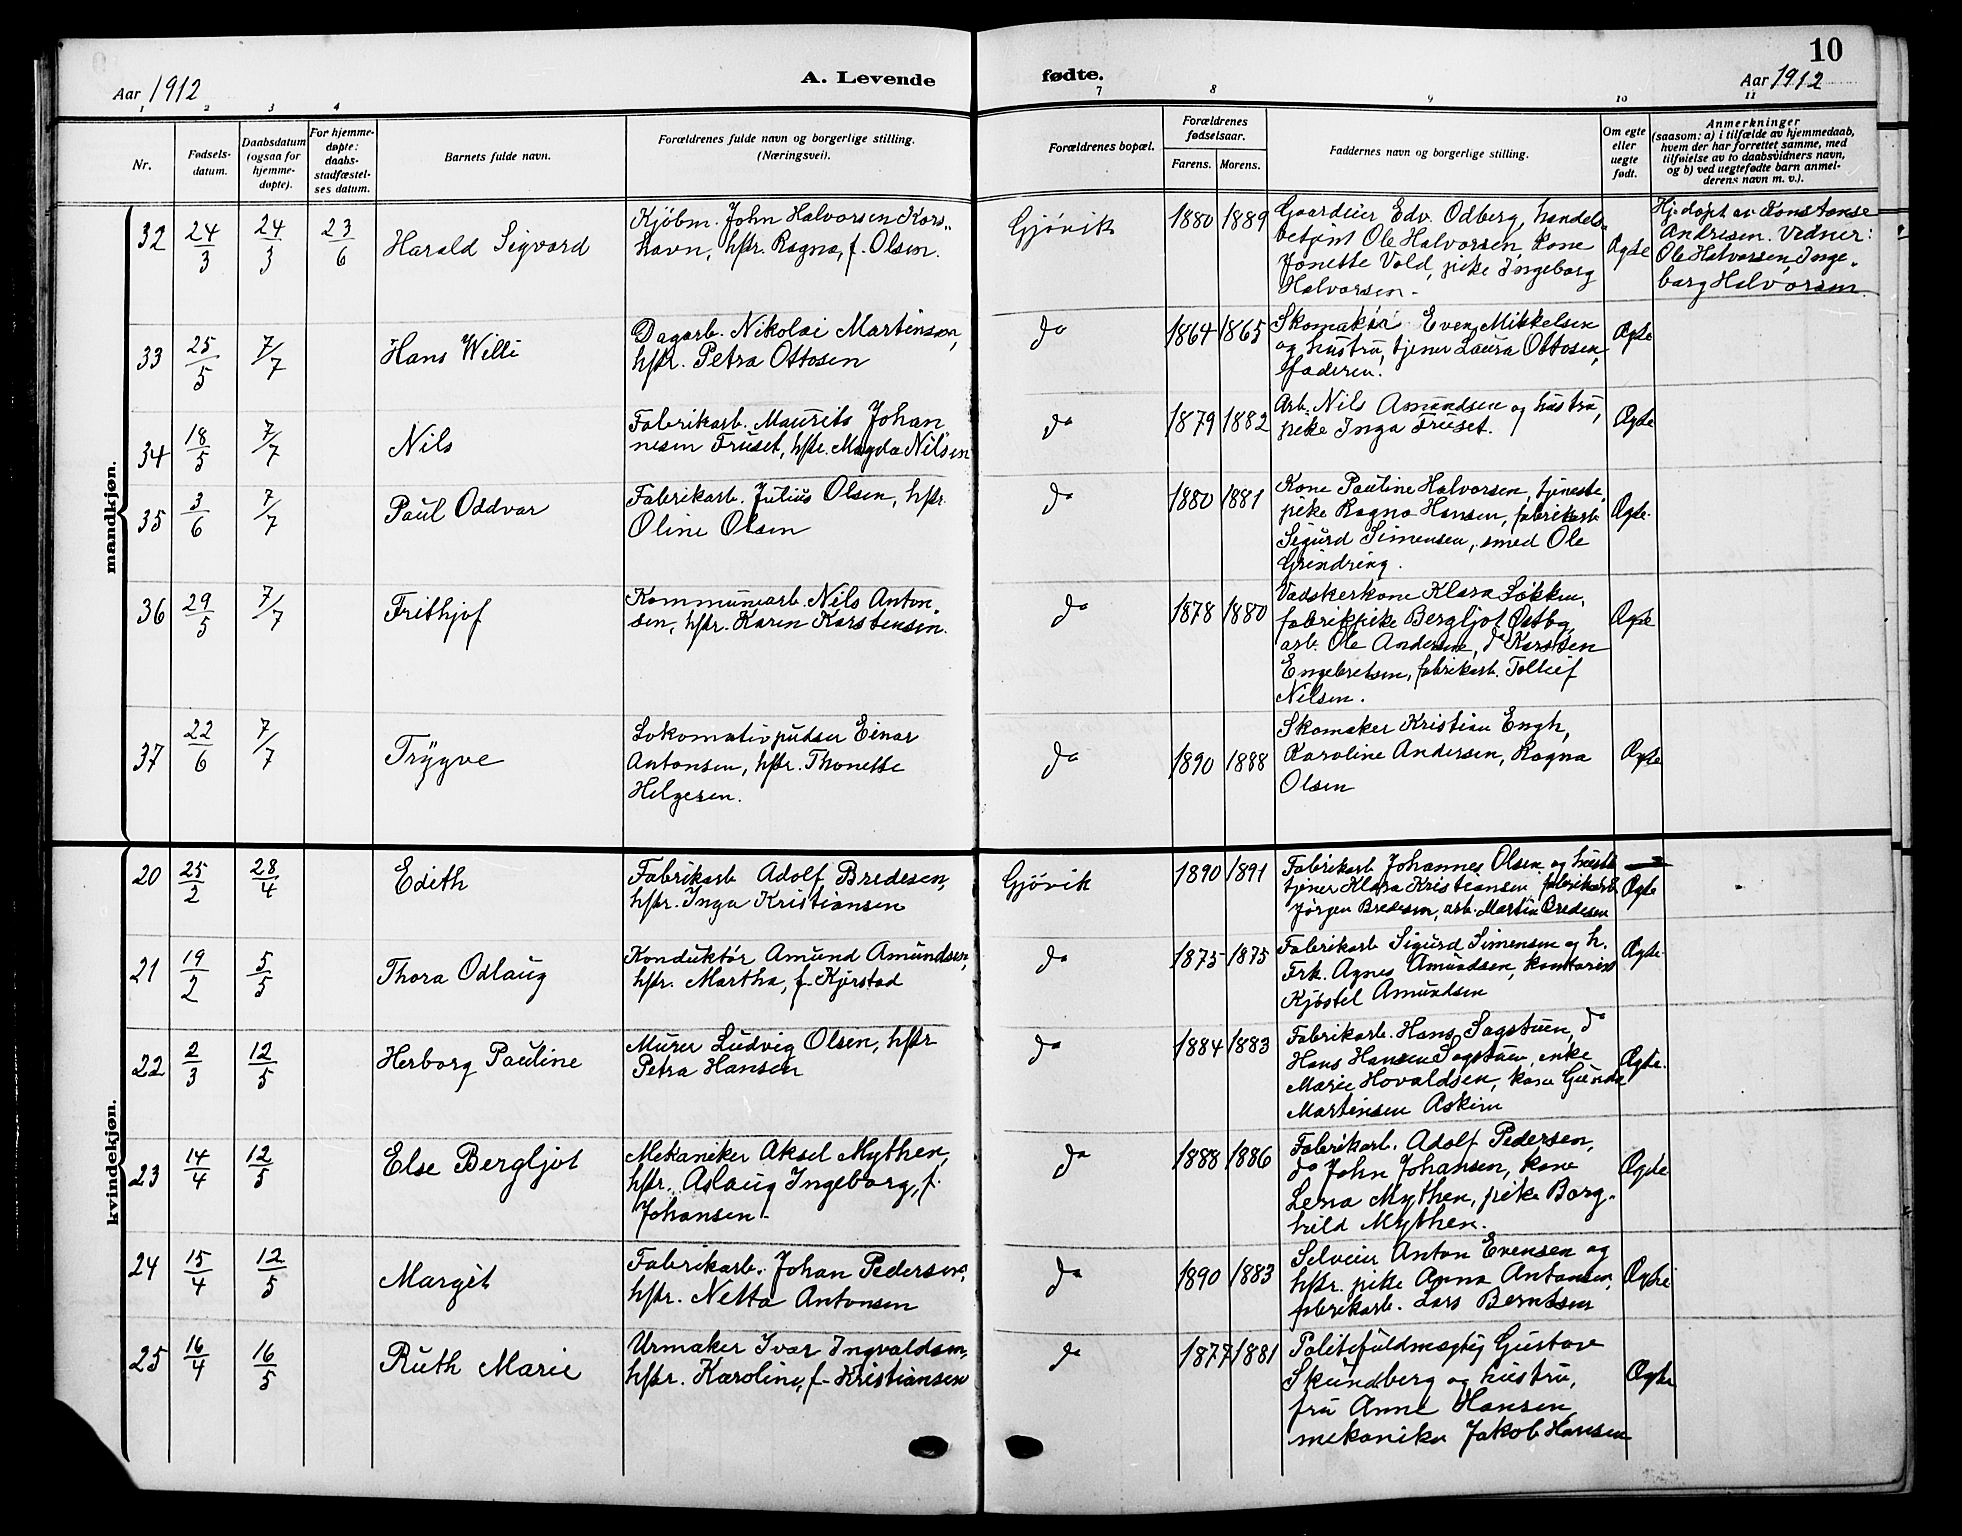 10
Aar 1912
A. Levende fødte.
Aar 1912
1 2 3 4 7 8 9 10 11
Nr.
Fødsels-
datum.
Daabsdatum
(ogsaa for
hjemme-
døpte).
For hjemme-
døpte:
daabs-
stadfæstel-
ses datum.
Barnets fulde navn.
Forældrenes fulde navn og borgerlige stilling.
(Næringsvei).
Forældrenes bopæl.
Forældrenes
fødselsaar.
Farens. Morens.
Faddernes navn og borgerlige stilling.
Om egte
eller
uegte
født.
Anmerkninger
(saasom: a) i tilfælde av hjemmedaab,
hvem der har forrettet samme, med
tilføielse av to daabsvidners navn,
og b) ved uegtefødte barn anmel-
derens navn m. v.).
mandkjøn.
32 24/3 24/3 23/6 Harald Sigvard
Kjøbm. John Halvorsen Kors-
havn, hstr. Ragna, f. Olsen.
Gjøvik 1880 1889
Gaardeier Edv. Odberg, handels-
betjent Ole Halvorsen, kone
Jonette Vold, pike Ingeborg
Halvorsen.
Ægte
Hj.døpt av Konstanse
Andresen. Vidner:
Ole Halvorsen, Inge-
borg Halvorsen
33 25/5 7/7 Hans Willi
Dagarb. Nikolai Martinsen,
hstr. Petra Ottosen
do 1864 1865
Skomaker Even Mikkelsen
og hustru, tjener Laura Ottosen,
faderen.
Ægte
34 18/5 7/7 Nils
Fabrikarb. Maurits Johan
nesen Fruset, hstr. Magda Nilsen
do 1879 1882
Arb. Nils Amundsen og hustru,
pike Inga Fruset.
Ægte
35 3/6 7/7 Paul Oddvar
Fabrikarb. Julius Olsen, hstr.
Oline Olsen
do 1880 1881
Kone Pauline Halvorsen, tjeneste-
pike Ragna Hansen, fabrikarb.
Sigurd Simensen, smed Ole
Grindring.
Ægte.
36 29/5 7/7 Frithjof
Kommunearb. Nils Anton-
sen, hstr. Karen Karstensen.
do 1878 1880
Vadskerkone Klara Løkken,
fabrikpike Bergljot Østby,
arb. Ole Andersen, do Karsten
Engebretsen, fabrikarb. Tollef
Nilsen.
Ægte
37 22/6 7/7 Trygve
Lokomotivpudser Einar
Antonsen, hstr. Thonette
Helgesen.
do 1890 1888
Skomaker Kristian Engh,
Karoline Andersen, Ragna
Olsen
Ægte
kvindekjøn.
20 25/2 28/4 Edith
Fabrikarb Adolf Bredesen,
hstr. Inga Kristiansen
Gjøvik 1890 1891
Fabrikarb Johannes Olsen og hustr.
tjener Klara Kristiansen, fabrikarb.
Jørgen Bredesen, arb. Martin Bredesen
Ægte
21 19/2 5/5 Thora Odlaug
Konduktør Amund Amundsen,
hstr. Martha, f. Kjerstad
do 1875 1875
Fabrikarb Sigurd Simensen og h.
Frk. Agnes Amundsen, kontorist
Kjøstel Amundsen
Ægte.
22 2/3 12/5 Herborg Pauline
Murer Ludvig Olsen, hstr
Petra Hansen
do 1884 1883
Fabrikarb. Hans Sagstuen, do
Hans Hansen Sagstuen, enke
Marie Hovaldsen, kone Gunda
Martinsen Askim
Ægte.
23 14/4 12/5 Else Bergljot
Mekaniker Aksel Mythen,
hstr. Aslaug Ingeborg, f.
Johansen.
do 1888 1886
Fabrikarb. Adolf Pedersen,
do John Johansen, kone
Lena Mythen, pike Borg-
hild Mythen.
Ægte
24 15/4 12/5 Margit
Fabrikarb. Johan Pedersen,
hstr. Netta Antonsen
do 1890 1883
Selveier Anton Evensen og
hstr. pike Anna Antonsen,
fabrikarb. Lars Berntsen
Ægte
25 16/4 16/5 Ruth Marie
Urmaker Ivar Ingvaldsen,
hstr. Karoline, f. Kristiansen
do 1877 1881
Politifuldmægtig Gustav
Skundberg og hustru,
fru Anne Hansen,
mekaniker Jakob Hansen
Ægte